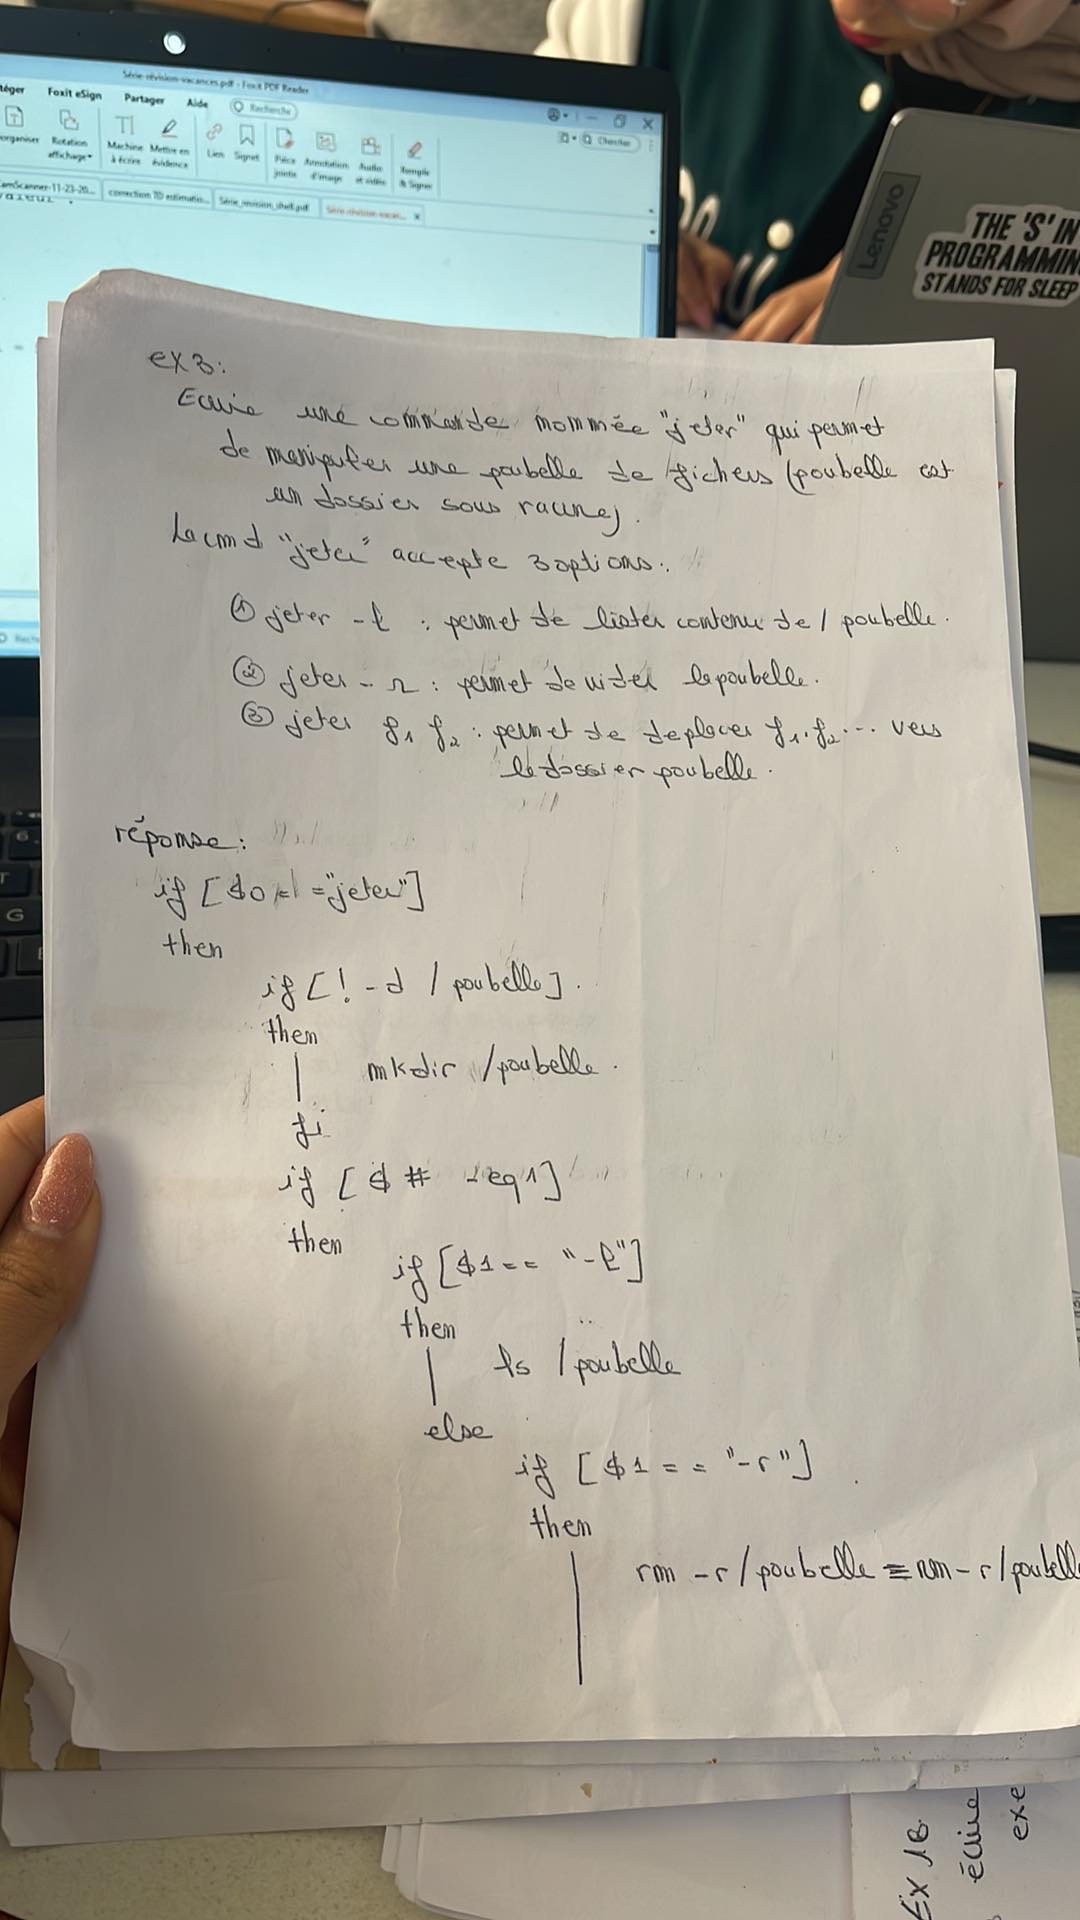 Série-révision-vacances.pdf - Foxit PDF Reader
téger Foxit eSign Partager Aide Recherche
organiser Rotation affichage Machine à écrire Mettre en évidence Lien Signet Pièce jointe Annotation d'image Audio et vidéo Remplir & Signer
Chercher
CamScanner-11-23-20... correction TD estimatio... Série_revision_shell.pdf Série-révision-vacan...
Lenovo
THE 'S' IN
PROGRAMMIN
STANDS FOR SLEEP
ex3:
Ecrire une commande nommée "jeter" qui permet
de manipuler une poubelle de fichers (poubelle est
un dossier sous racine).
La cmd "jeter" accepte 3 options:
① jeter -l : permet de lister contenu de / poubelle.
② jeter -r : permet de vider la poubelle.
③ jeter f1 f2 : permet de deplacer f1. f2... vers
le dossier poubelle.
réponse:
if [ $0 = = "jeter"]
then
if [! -d / poubelle].
then
mkdir /poubelle.
fi
if [ $ # -eq1]
then
if [$1 == "-l"]
then
ls /poubelle
else
if [ $1 == "-r"]
then
rm -r /poubelle ≡ rm -r /poubelle
EX 16
écrire
exe